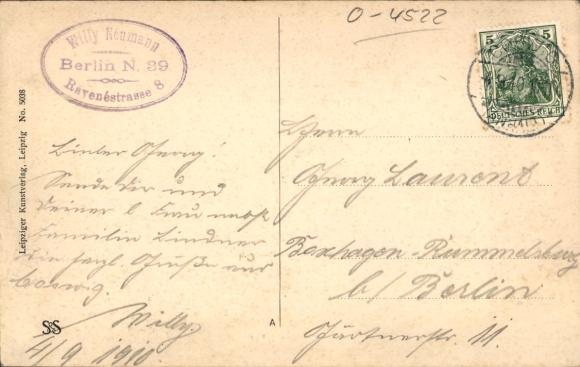 O-4522
Willy Neumann
Berlin N. 39
Ravenéstrasse 8
5
DEUTSCHES REICH
Leipziger Kunstverlag, Leipzig No. 5038
Lieber Georg!
Sende Dir und
Deiner l. Frau nebst
Familie Lindner
die herzl. Grüße aus
Willy
4/9 1910.
SS
A
Herrn
Georg Laurent
Boxhagen-Rummelsburg
b/Berlin
Gärtnerstr. 11.